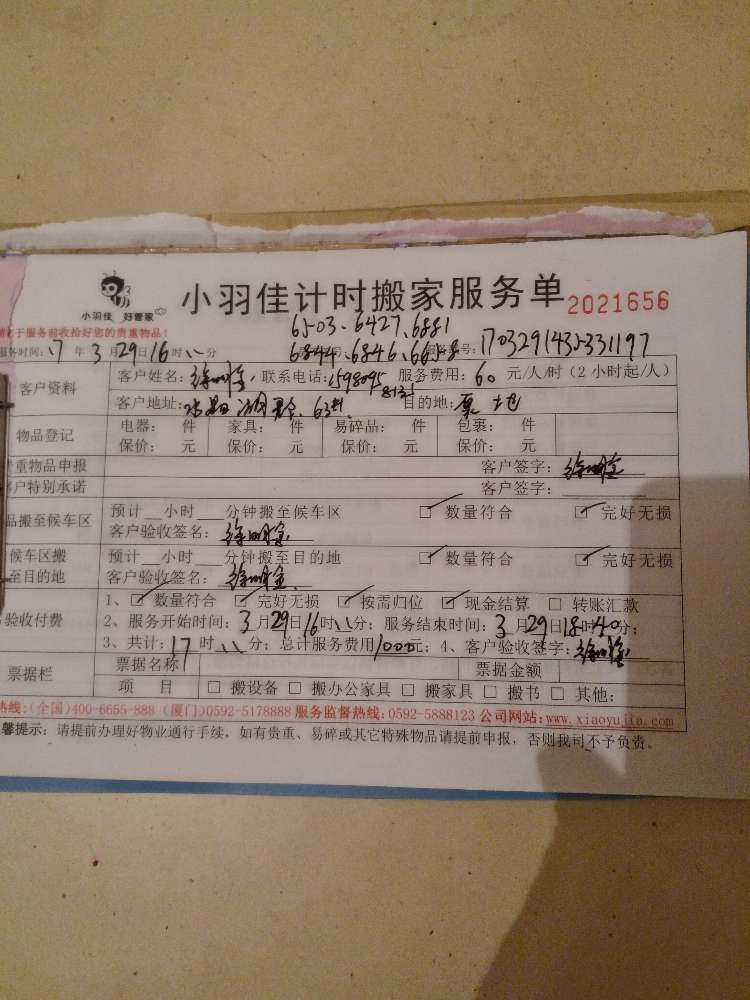 小羽佳 好管家
小羽佳计时搬家服务单 2021656
于服务验收拾好您的贵重物品!
6503、6427、6881
服务时间:17年3月29日16时 分 6844、6846、 号:
客户资料 客户姓名: 联系电话: 服务费用:60元/人/时(2小时起/人)
客户地址: 目的地:原地
物品登记 电器: 件 家具: 件 易碎品: 件 包裹: 件
保价: 元 保价: 元 保价: 元 保价: 元
重物品申报 客户签字:
户特别承诺 客户签字:
品搬至候车区 预计__小时__分钟搬至候车区 □ 数量符合 □ 完好无损
客户验收签名:
候车区搬 预计__小时__分钟搬至目的地 □ 数量符合 □ 完好无损
至目的地 客户验收签名:
1、□ 数量符合 □ 完好无损 □ 按需归位 □ 现金结算 □ 转账汇款
验收付费 2、服务开始时间:3月29日16时 分;服务结束时间:3月29日18时40分;
3、共计:17时 分;总计服务费用1000元;4、客户验收签字:
票据栏 票据名称 票据金额
项 目 □ 搬设备 □ 搬办公家具 □ 搬家具 □ 搬书 □ 其他:
热线:(全国)400-6655-888 (厦门)0592-5178888 服务监督热线:0592-5888123 公司网站:www.xiaoyujia.com
馨提示:请提前办理好物业通行手续,如有贵重、易碎或其它特殊物品请提前申报,否则我司不予负责。